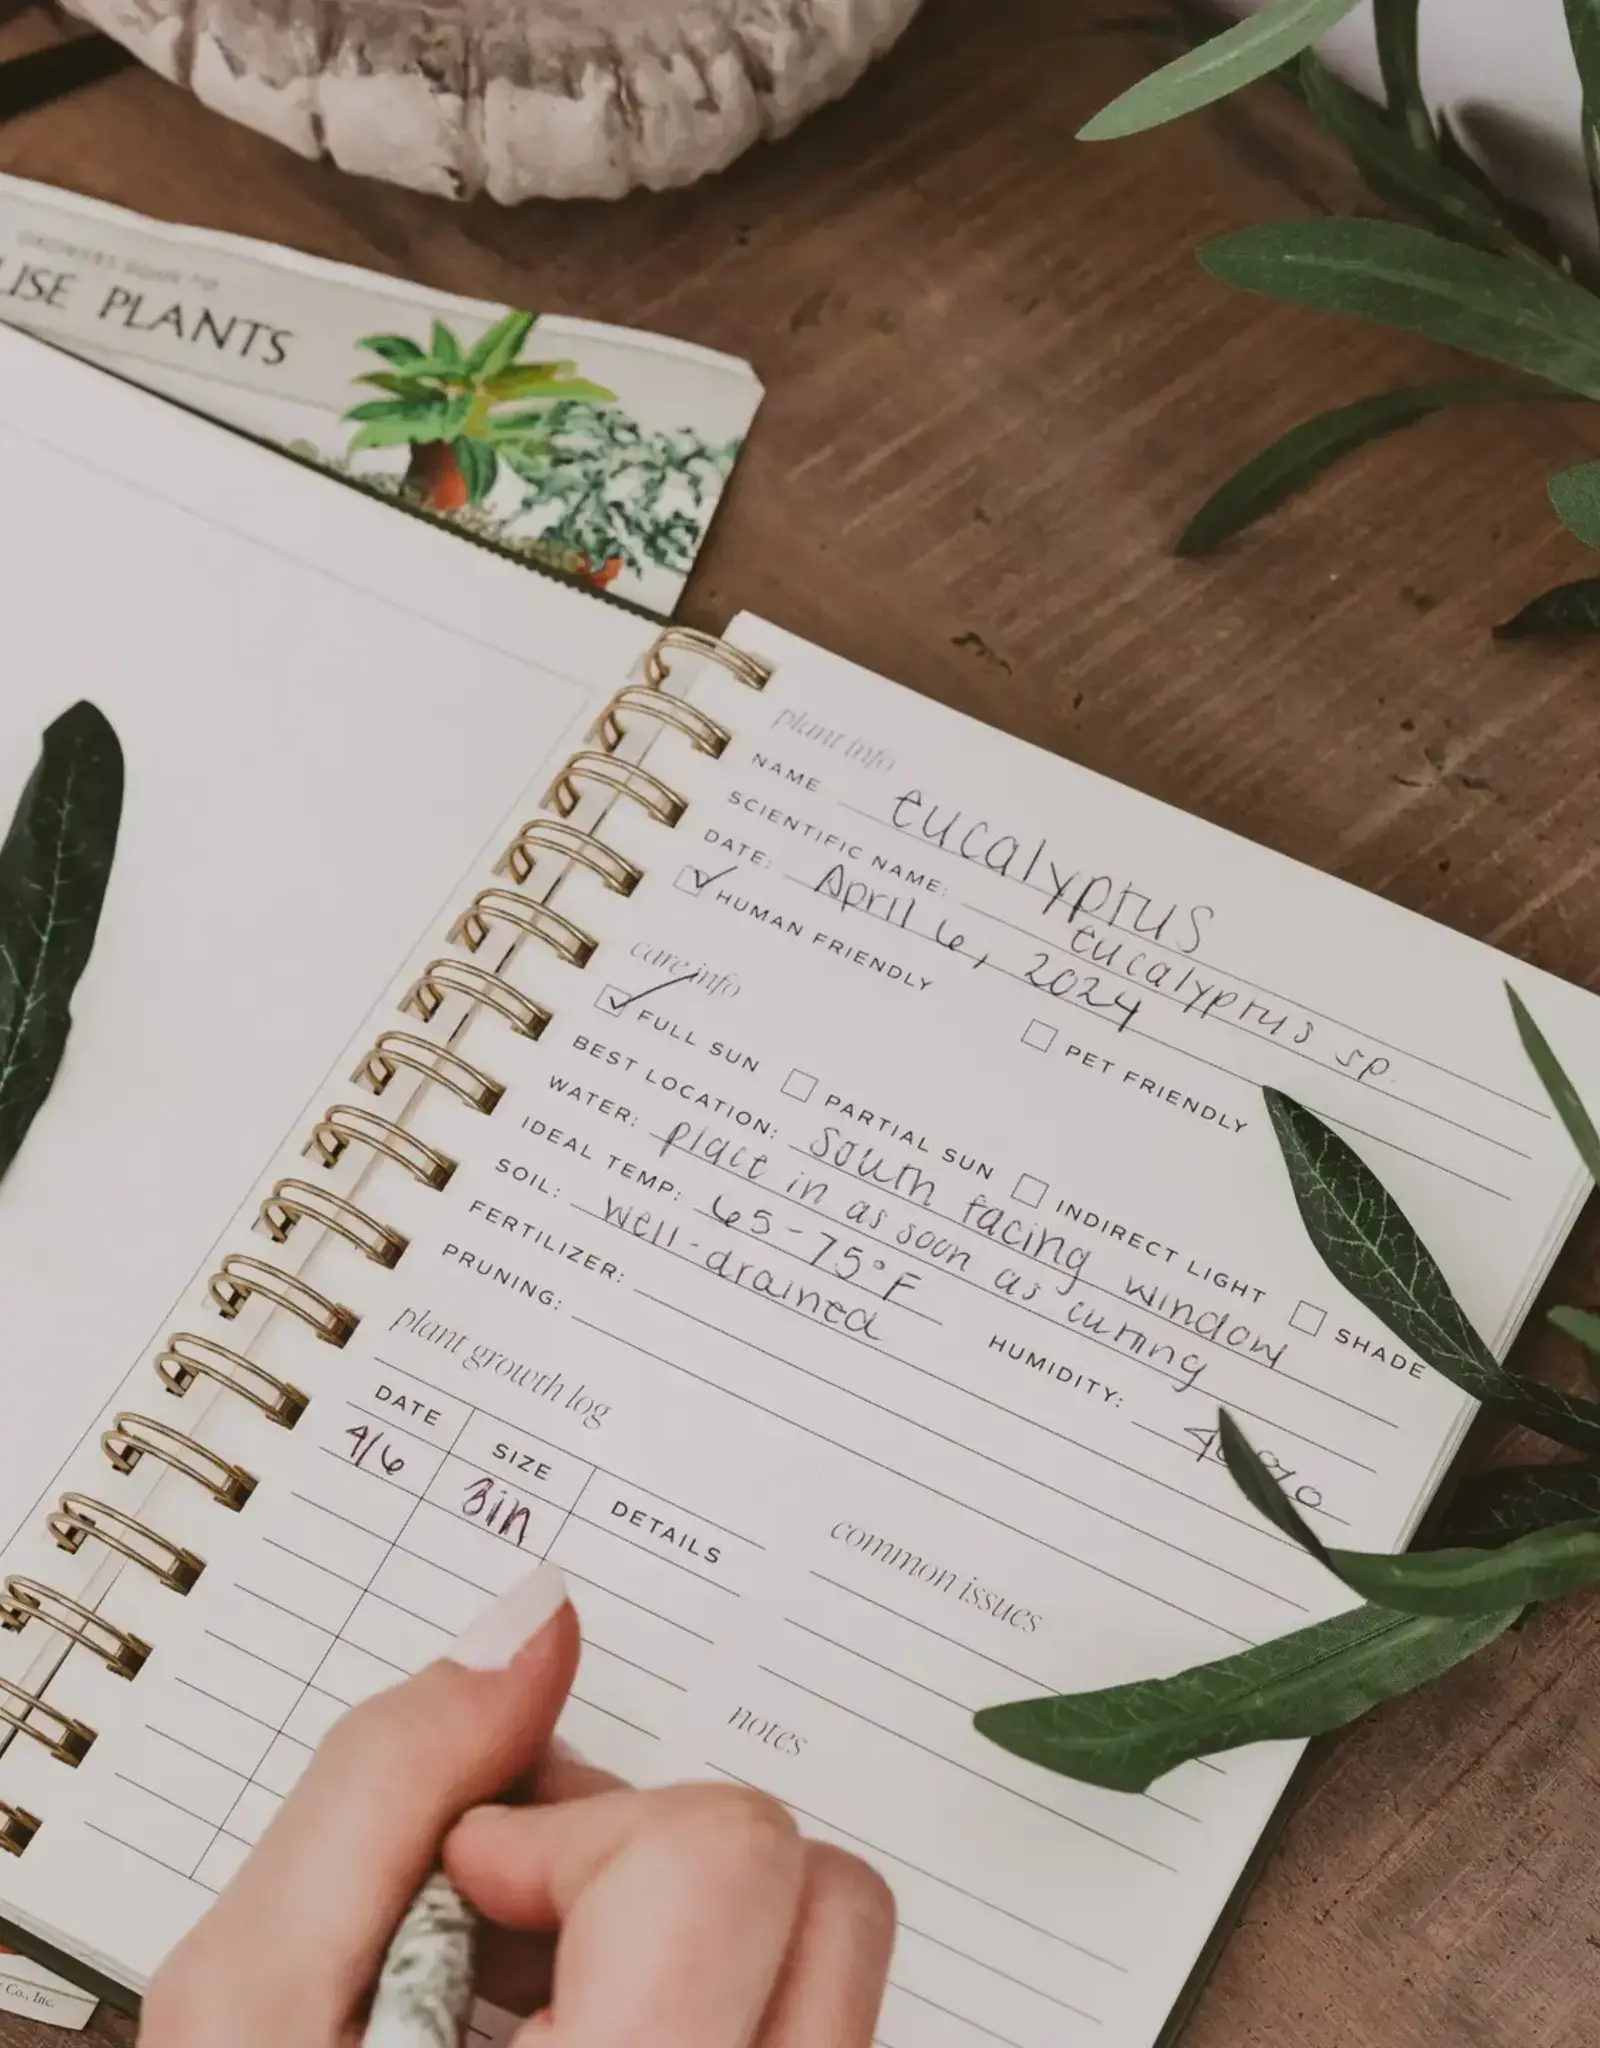 GROWER'S GUIDE TO
PLANTS
plant info
NAME eucalyptus
SCIENTIFIC NAME: eucalyptus sp.
DATE: April 6, 2024
HUMAN FRIENDLY PET FRIENDLY
care info
FULL SUN PARTIAL SUN INDIRECT LIGHT SHADE
BEST LOCATION: south facing window
WATER: place in as soon as curling
IDEAL TEMP: 65-75°F HUMIDITY:
SOIL: well-drained
FERTILIZER:
PRUNING:
plant growth log
DATE SIZE DETAILS
4/6 3in
common issues
notes
Co., Inc.